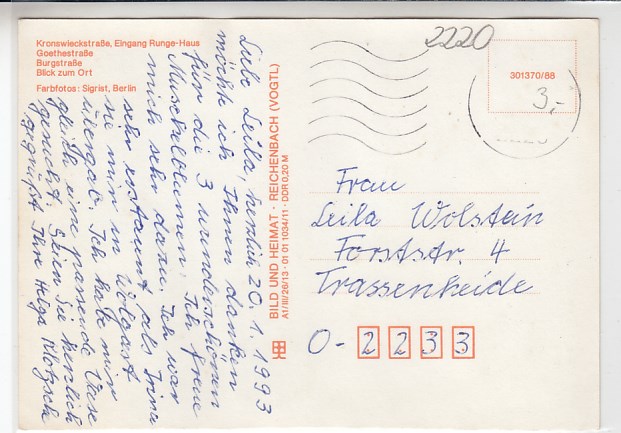 Kronswieckstraße, Eingang Runge-Haus
Goethestraße
Burgstraße
Blick zum Ort
Farbfotos: Sigrist, Berlin
20. 1. 1993
Liebe Leila, herzlich
möchte ich Ihnen danken
für die 3 wunderschönen
Muschelblumen. Ich freue
mich sehr darüber. Ich war
sehr erstaunt, als Irina
sie mir in Wolgast
übergab. Ich habe mir
gleich eine passende Vase
gesucht. Seien Sie herzlich
gegrüßt Ihre Helga
BILD UND HEIMAT · REICHENBACH (VOGTL)
A1/III/26/13 · 01 01 1034/11 · DDR 0,20 M
2220
301370/88
3,-
Frau
Leila Wolstein
Forststr. 4
Trassenheide
O - 2 2 3 3